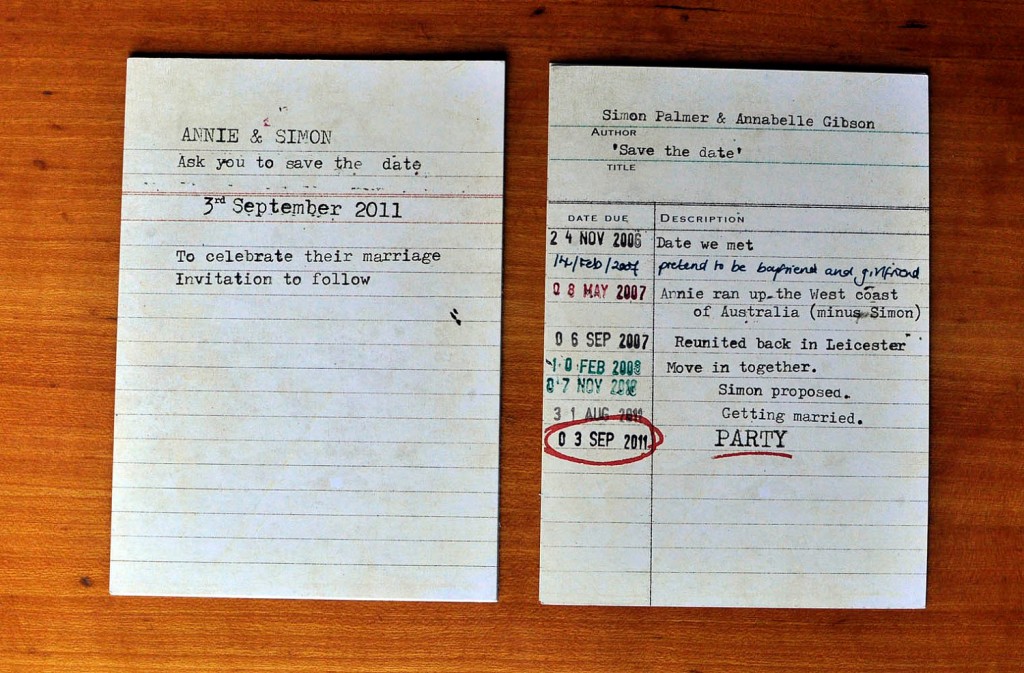 ANNIE & SIMON
Ask you to save the date
3rd September 2011
To celebrate their marriage
Invitation to follow
Simon Palmer & Annabelle Gibson
AUTHOR
'Save the date'
TITLE
DATE DUE DESCRIPTION
24 NOV 2006 Date we met
14/Feb/2007 pretend to be boyfriend and girlfriend
08 MAY 2007 Annie ran up the West coast
of Australia (minus Simon)
06 SEP 2007 Reunited back in Leicester
10 FEB 2008 Move in together.
07 NOV 2010 Simon proposed.
31 AUG 2011 Getting married.
03 SEP 2011 PARTY